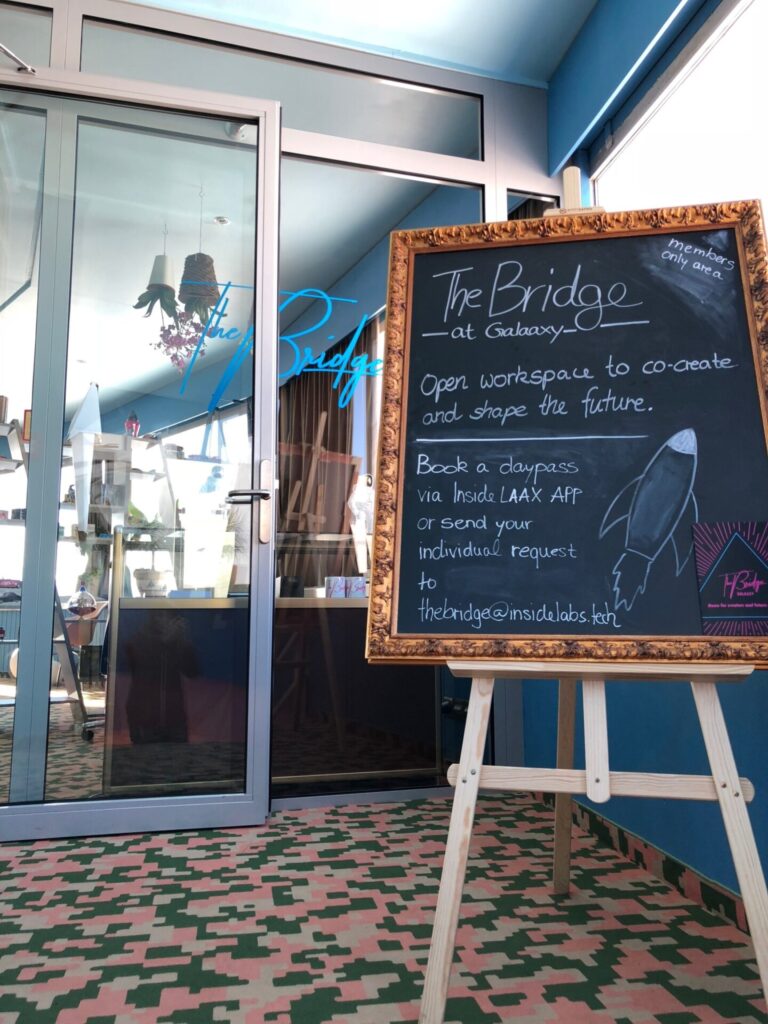 The Bridge
members
only area
The Bridge
at Galaaxy
Open workspace to co-create
and shape the future.
Book a daypass
via Inside LAAX APP
or send your
individual request
to
thebridge@insidelabs.tech
The Bridge
GALAAXY